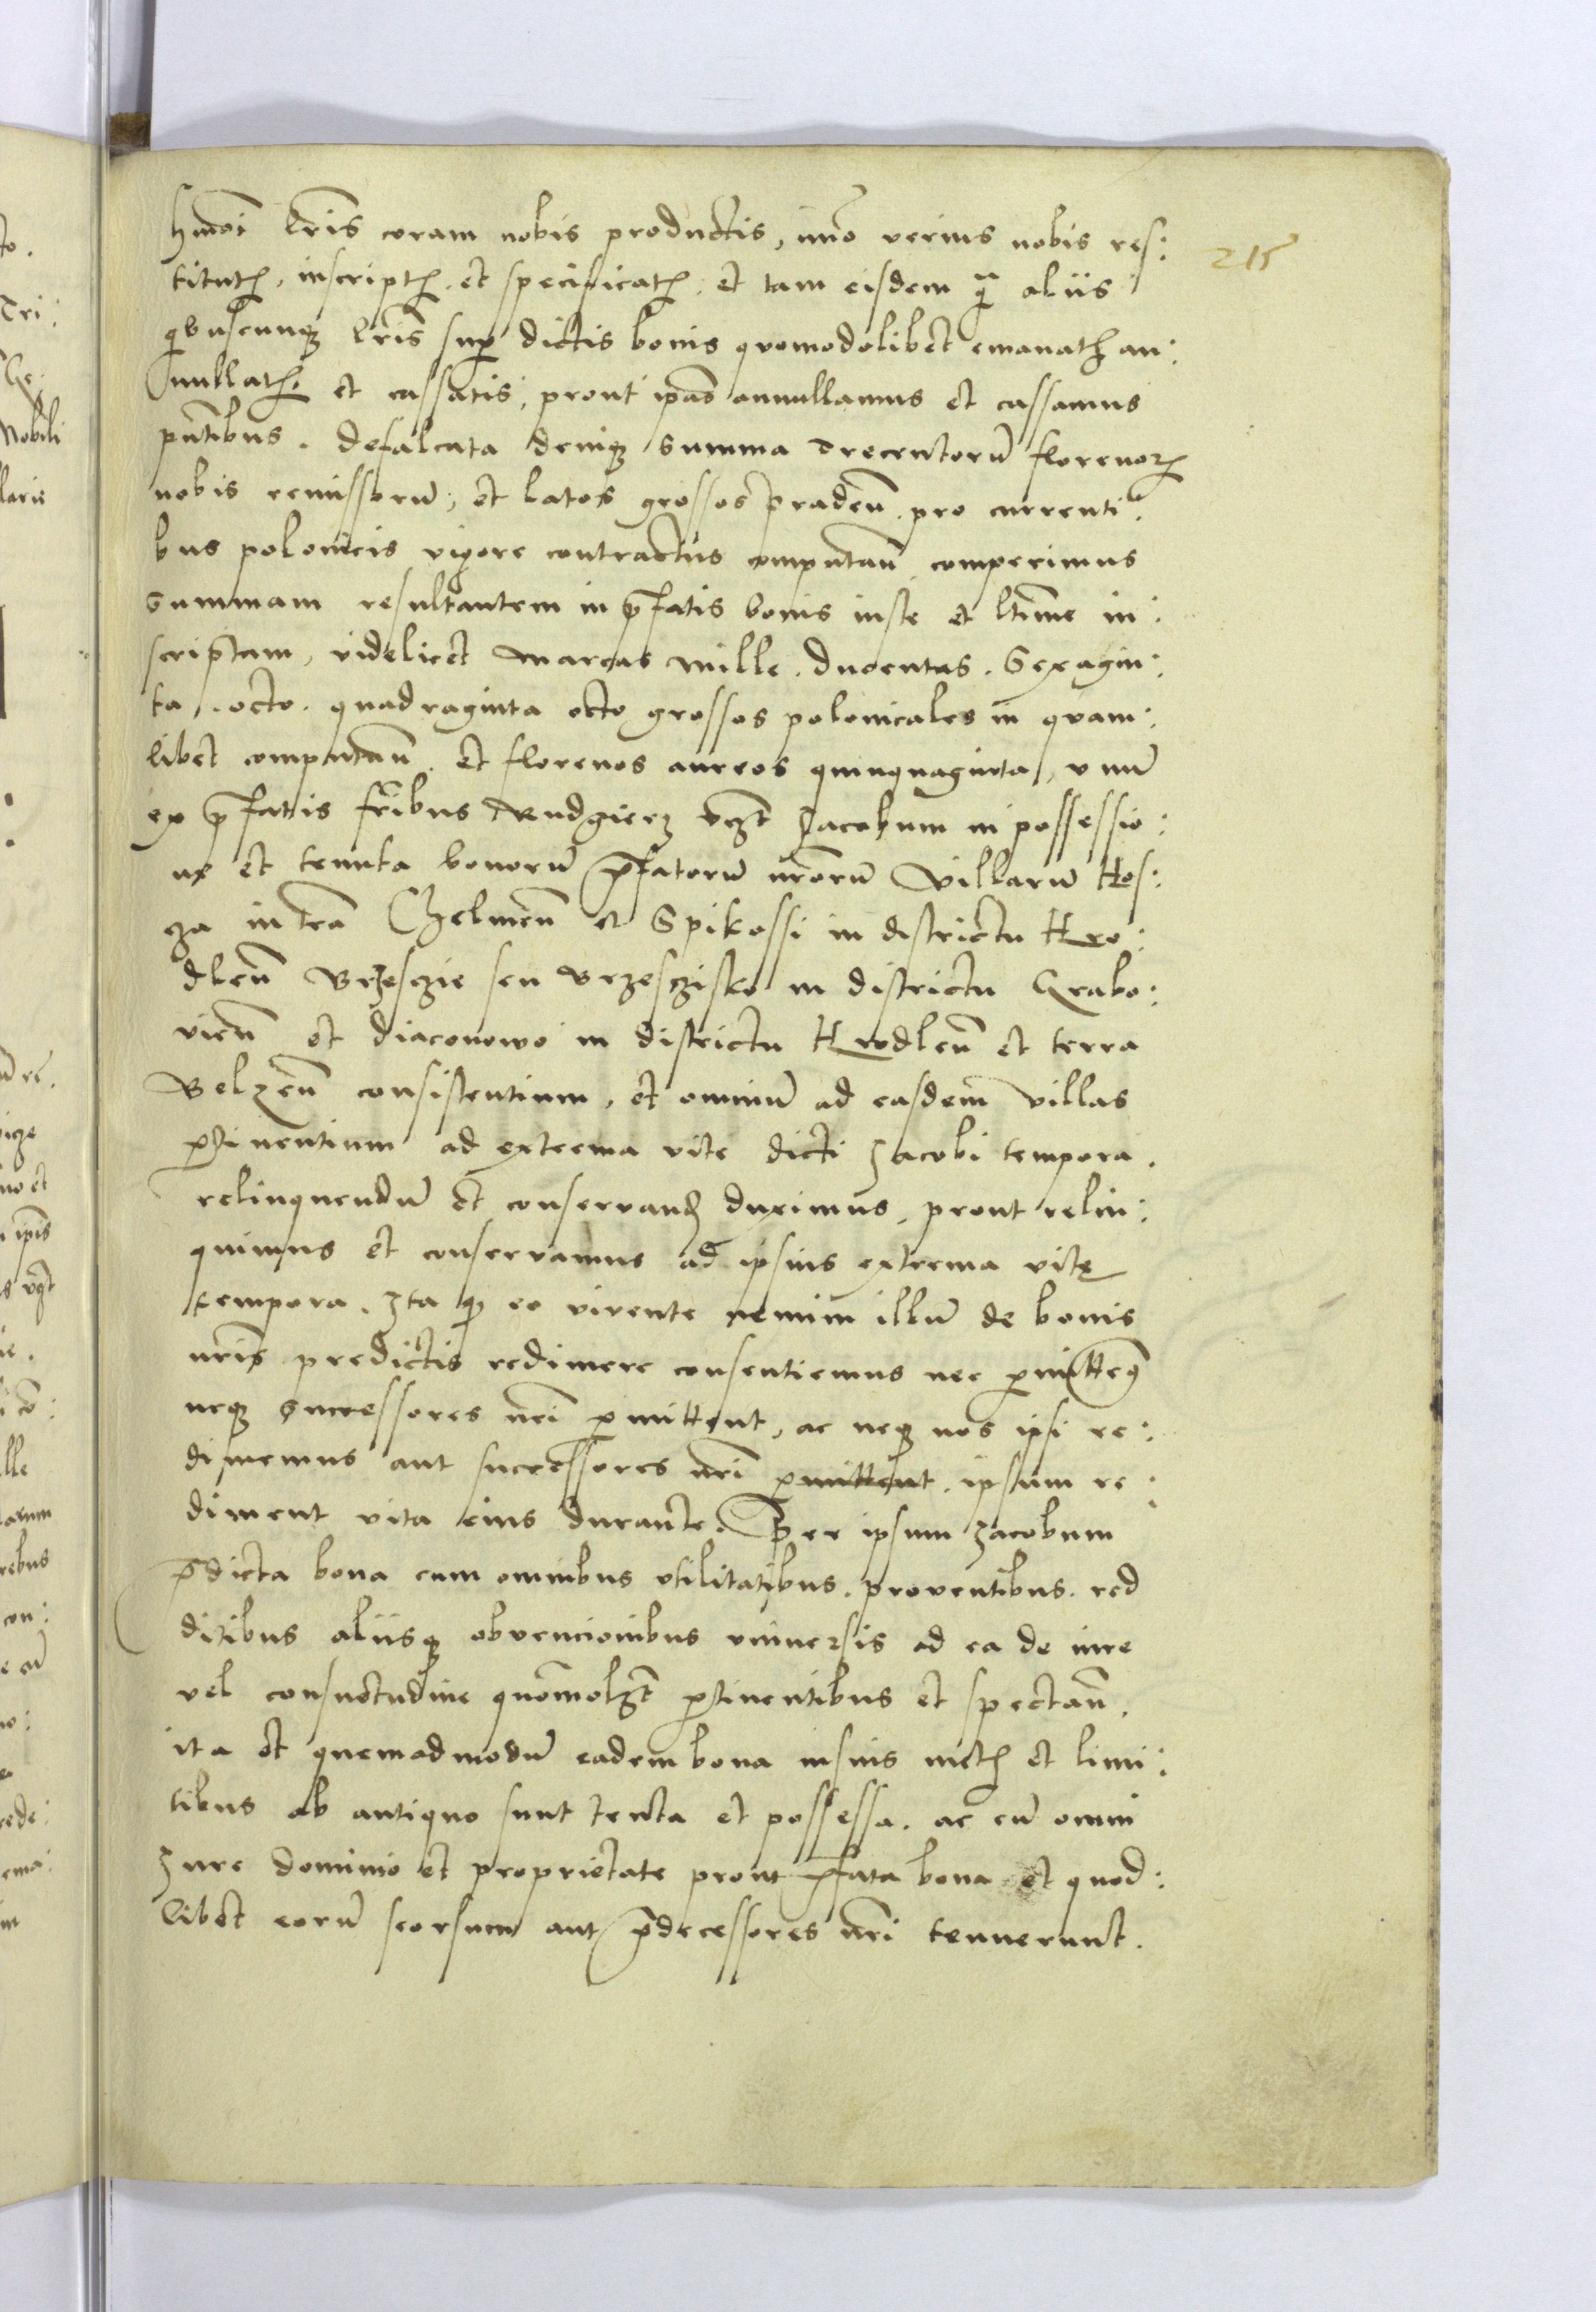 215
hmoi lris coram nobis productis, imo verius nobis res:
titutis, inscriptis et specificatis, et tam eisdem q̃ aliis
qbuscunq lris sup dictis bonis quomodolibet emanatis an:
nullatis et cassatis, prout ipas annullamus et cassamus
pntibus. defalcata deniq summa trecentorũ florenorum
nobis remissorũ, et latos grossos pradeñ. pro currenti:
bus polonicis vigore contractus computañ, comperimus
Summam resultantem in p̃fatis bonis iuste et ltime in:
scriptam, videlicet marcas mille. ducentas. Sexagin:
ta. octo. quadraginta octo grossos polonicales in quam:
libet computañ. et florenos aureos quinquaginta, vnũ
ex p̃fatis fribus Rudgierz vꝫt Jacobum in possessio:
ne et tenuta bonorũ p̃fatorũ nrorũ Villarũ Hos:
za in tra Chelmeñ et Spikossi in districtu Hro:
dleñ Brzesczie seu Brzesczisko in districtu Grabo:
vieñ et diaconowo in districtu Hrodleñ et terra
Belzeñ consistentium, et omniũ ad easdem villas
ptinentium ad extrema vite dicti Jacobi tempora.
relinquendũ et conservand duximus, prout relin:
quimus et conservamus ad ipsius extrema vitę
tempora. Ita q eo vivente nemini illũ de bonis
nris predictis redimere consentiemus nec pmittemus
neq successores nri pmittent, ac neq nos ipsi re:
dimemus aut successores nri pmittent. ipsum re:
diment vita eius durante. Per ipsum Jacobum
p̃dicta bona cum omnibus vtilitatibus. proventibus. red
ditibus aliisq obvencionibus vniversis ad ea de iure
vel consuetudine quomolꝫt ptinentibus et spectañ.
ita et quemadmodũ eadem bona in suis metis et limi:
tibus ab antiquo sunt tenta et possessa. ac cũ omni
Jure dominio et proprietate prout p̃fata bona et quod:
libet eorũ seorsum aut p̃decessores nri tenuerunt.